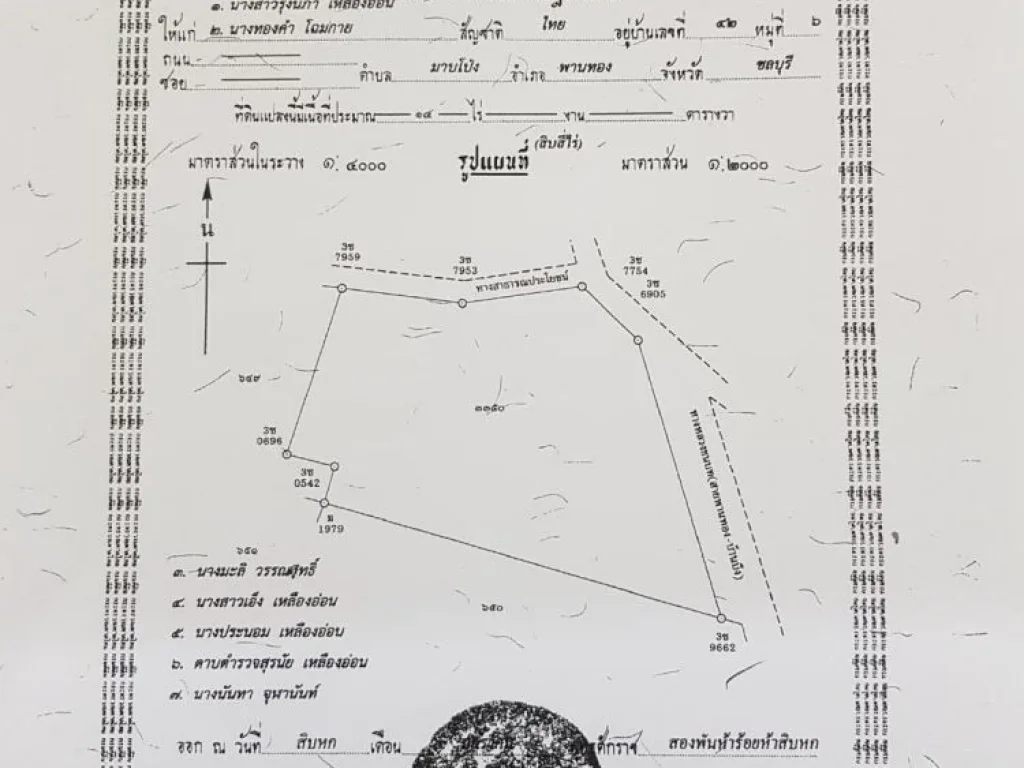 ๑. นางสาวรุ่งนภา เหลืองอ่อน
ให้แก่ ๒. นางทองคำ โฉมกาย สัญชาติ ไทย อยู่บ้านเลขที่ ๔๒ หมู่ที่ ๖
ถนน
ซอย ตำบล มาบโป่ง อำเภอ พานทอง จังหวัด ชลบุรี
ที่ดินแปลงนี้มีเนื้อที่ประมาณ ๑๔ ไร่ งาน ตารางวา
(สิบสี่ไร่)
มาตราส่วนในระวาง ๑:๔๐๐๐ รูปแผนที่ มาตราส่วน ๑:๒๐๐๐
น
3ช 7959
3ช 7953
ทางสาธารณประโยชน์
3ช 7754
3ช 6905
๖๔๙
๓๓๕๐
ทางหลวงชนบท(สายพานทอง-บ้านบึง)
3ช 0696
3ช 0542
ม 1979
๖๕๑
๖๕๐
3ช 9662
๓. นางมะลิ วรรณสุทธิ์
๔. นางสาวเอ็ง เหลืองอ่อน
๕. นางประนอม เหลืองอ่อน
๖. ดาบตำรวจสุรนัย เหลืองอ่อน
๗. นางนันทา จุฬานันท์
ออก ณ วันที่ สิบหก เดือน สองพันห้าร้อยห้าสิบหก